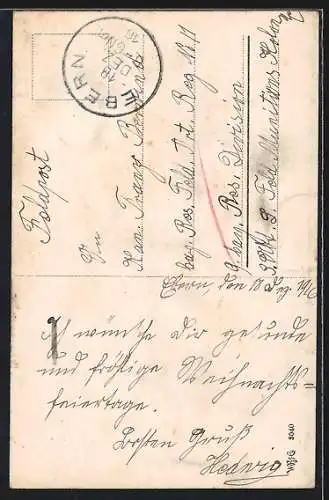 EBERN
18 DEZ
Feldpost
An
Kan. Franz
bay. Res. Feld. Art. Reg. No 11
9. bay. Res. Division
Abt. Feld Munitions Kolon
Ebern, den 18 Dez. 1916
Ich wünsche Dir gesunde
und fröhliche Weihnachts-
feiertage.
Besten Gruß
Hedwig
5040